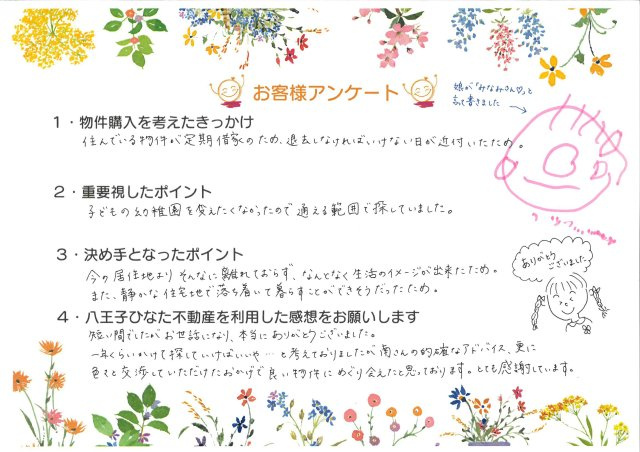 お客様アンケート
娘が「みなみさん♡」と
言って書きました
1・物件購入を考えたきっかけ
住んでいる物件が定期借家のため、退去しなければいけない日が近付いたため。
2・重要視したポイント
子どもの幼稚園を変えたくなかったので通える範囲で探していました。
3・決め手となったポイント
今の居住地よりそんなに離れておらず、なんとなく生活のイメージが出来たため。
また、静かな住宅地で落ち着いて暮らすことができそうだったため。
ありがとう
ございました
4・八王子ひなた不動産を利用した感想をお願いします
短い間でしたがお世話になり、本当にありがとうございました。
一年くらいかけて探していけばいいや…と考えておりましたが南さんの的確なアドバイス、更に
色々と交渉していただけたおかげで良い物件にめぐり会えたと思っております。とても感謝しています。